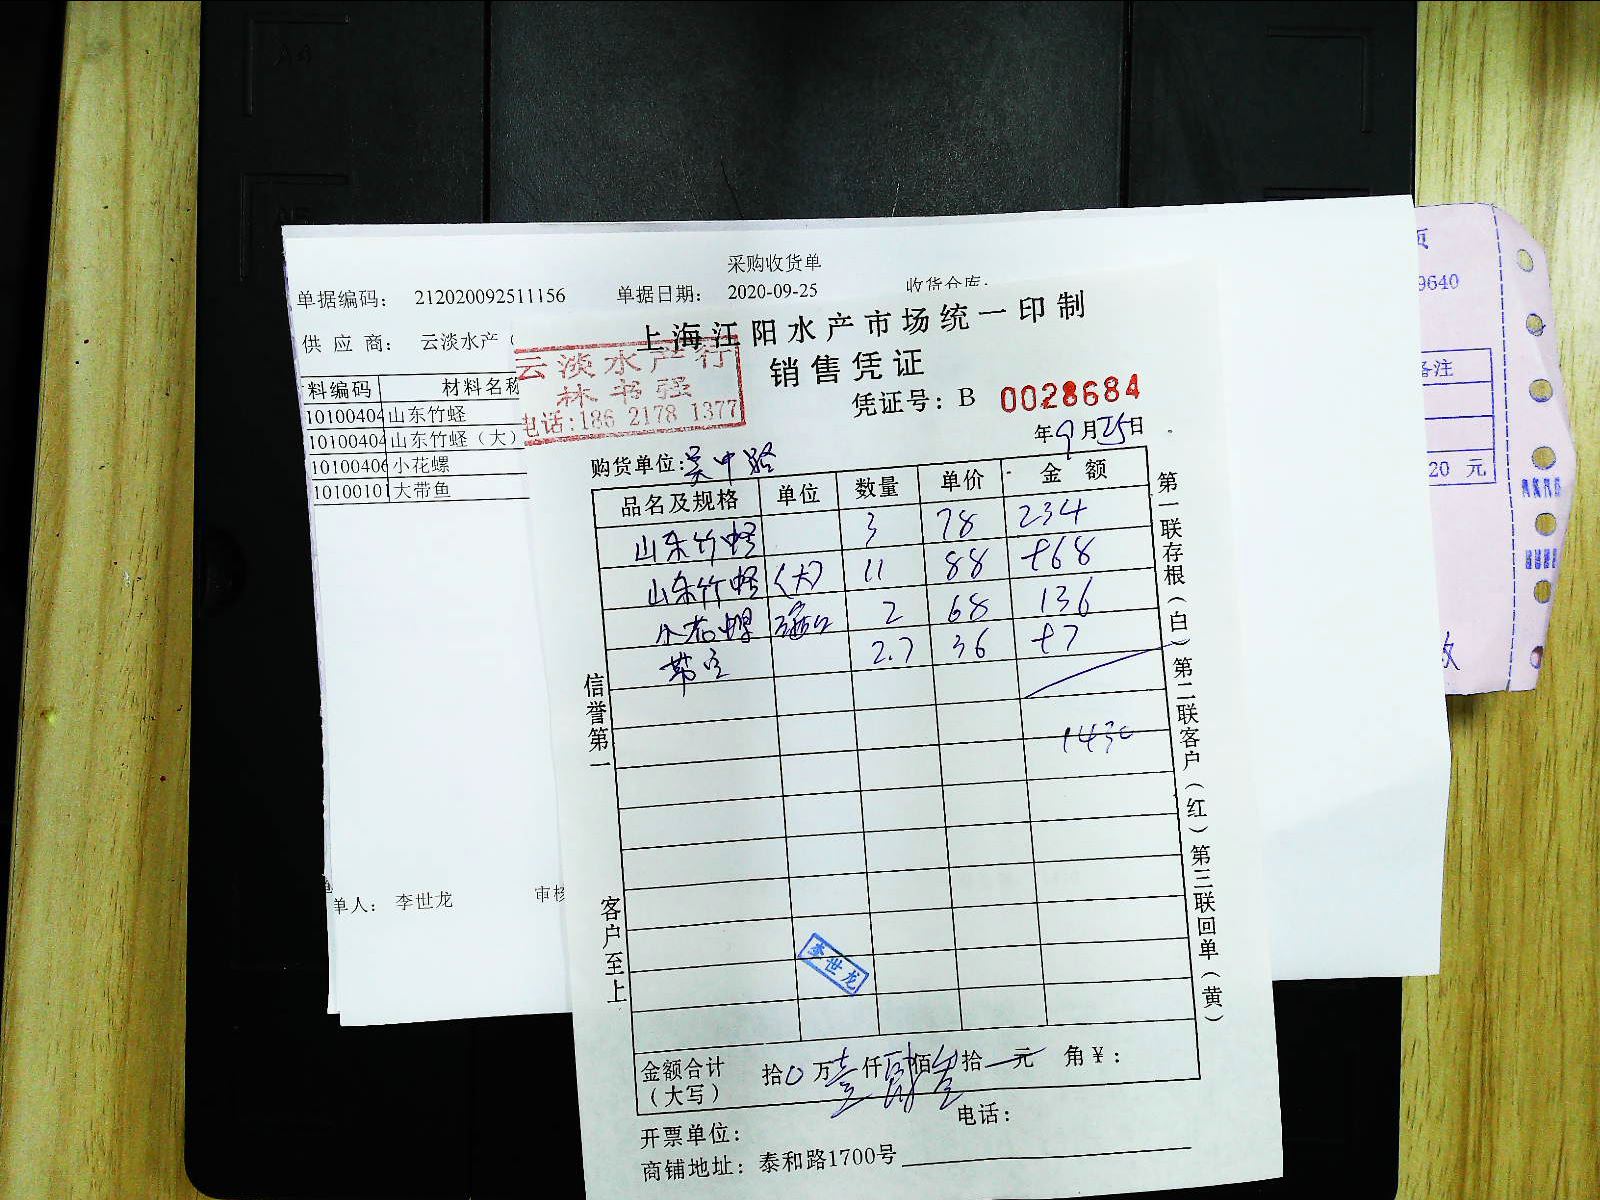 采购收货单
单据编码： 212020092511156 单据日期： 2020-09-25 收货仓库：
供 应 商： 云淡水产（
料编码 材料名称
10100404 山东竹蛏
10100404 山东竹蛏（大）
10100406 小花螺
10100101 大带鱼
单人： 李世龙 审核
上海江阳水产市场统一印制
销售凭证
凭证号：B 0028684
云淡水产行
林书强
电话:186 2178 1377
年9月25日
购货单位:吴中路
品名及规格 单位 数量 单价 金 额
山东竹蛏 3 78 234
山东竹蛏 (大) 11 88 968
小花螺 2 68 136
带鱼 2.7 36 97
1430
李世龙
信誉第一
客户至上
第一联存根（白）第二联客户（红）第三联回单（黄）
金额合计（大写） 拾0万壹仟肆佰叁拾 元 角￥：
开票单位： 电话：
商铺地址：泰和路1700号
页
9640
备注
20 元
收